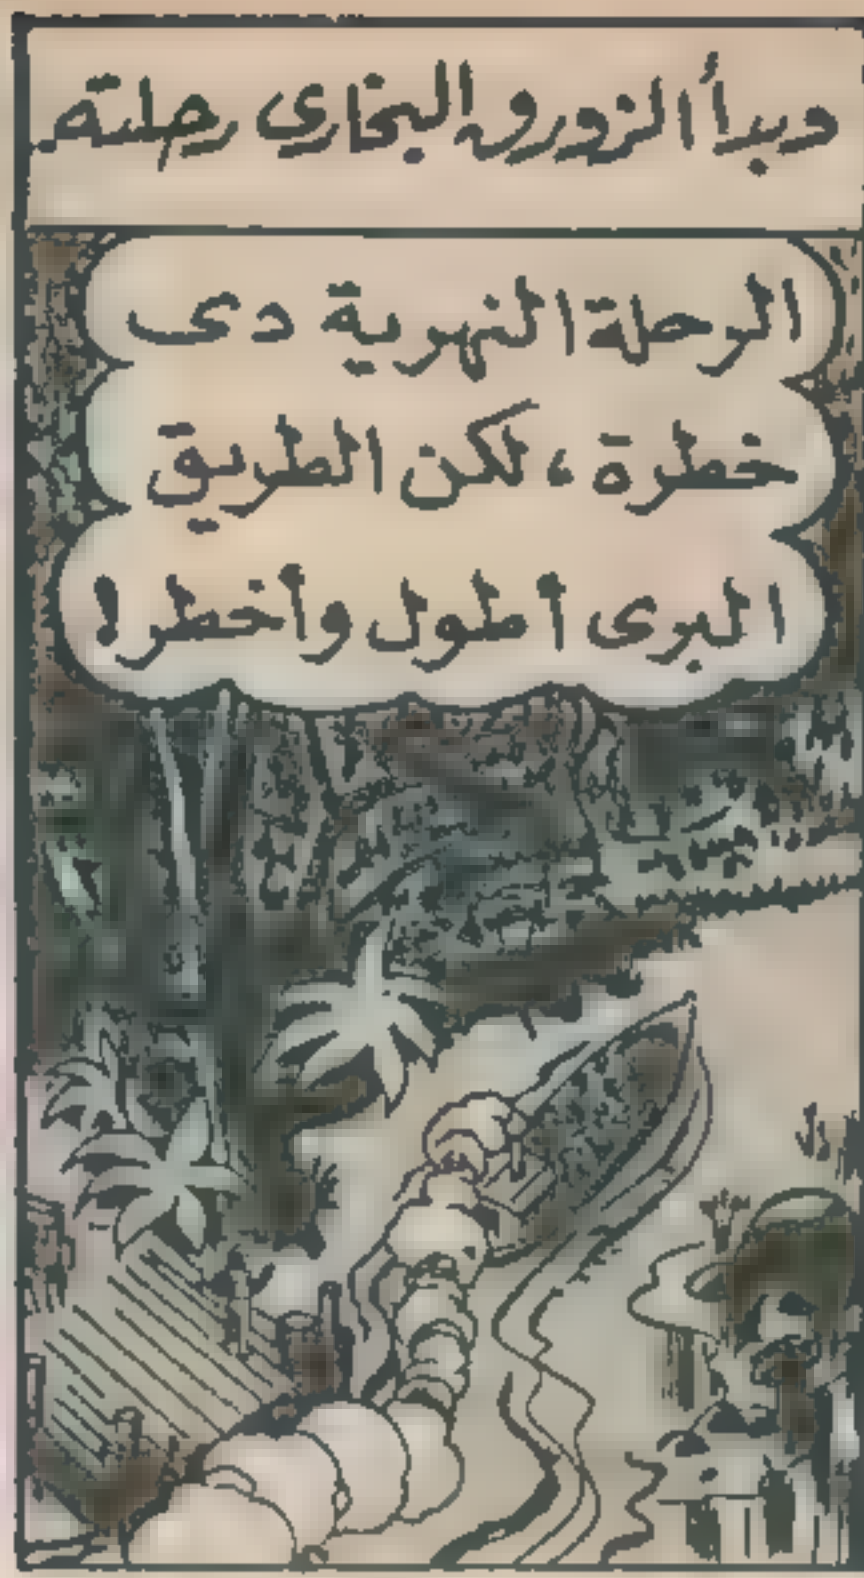 وبدأ الزورق البخاري رحلته
الرحلة النهرية دى
خطرة ، لكن الطريق
البرى أطول وأخطر !